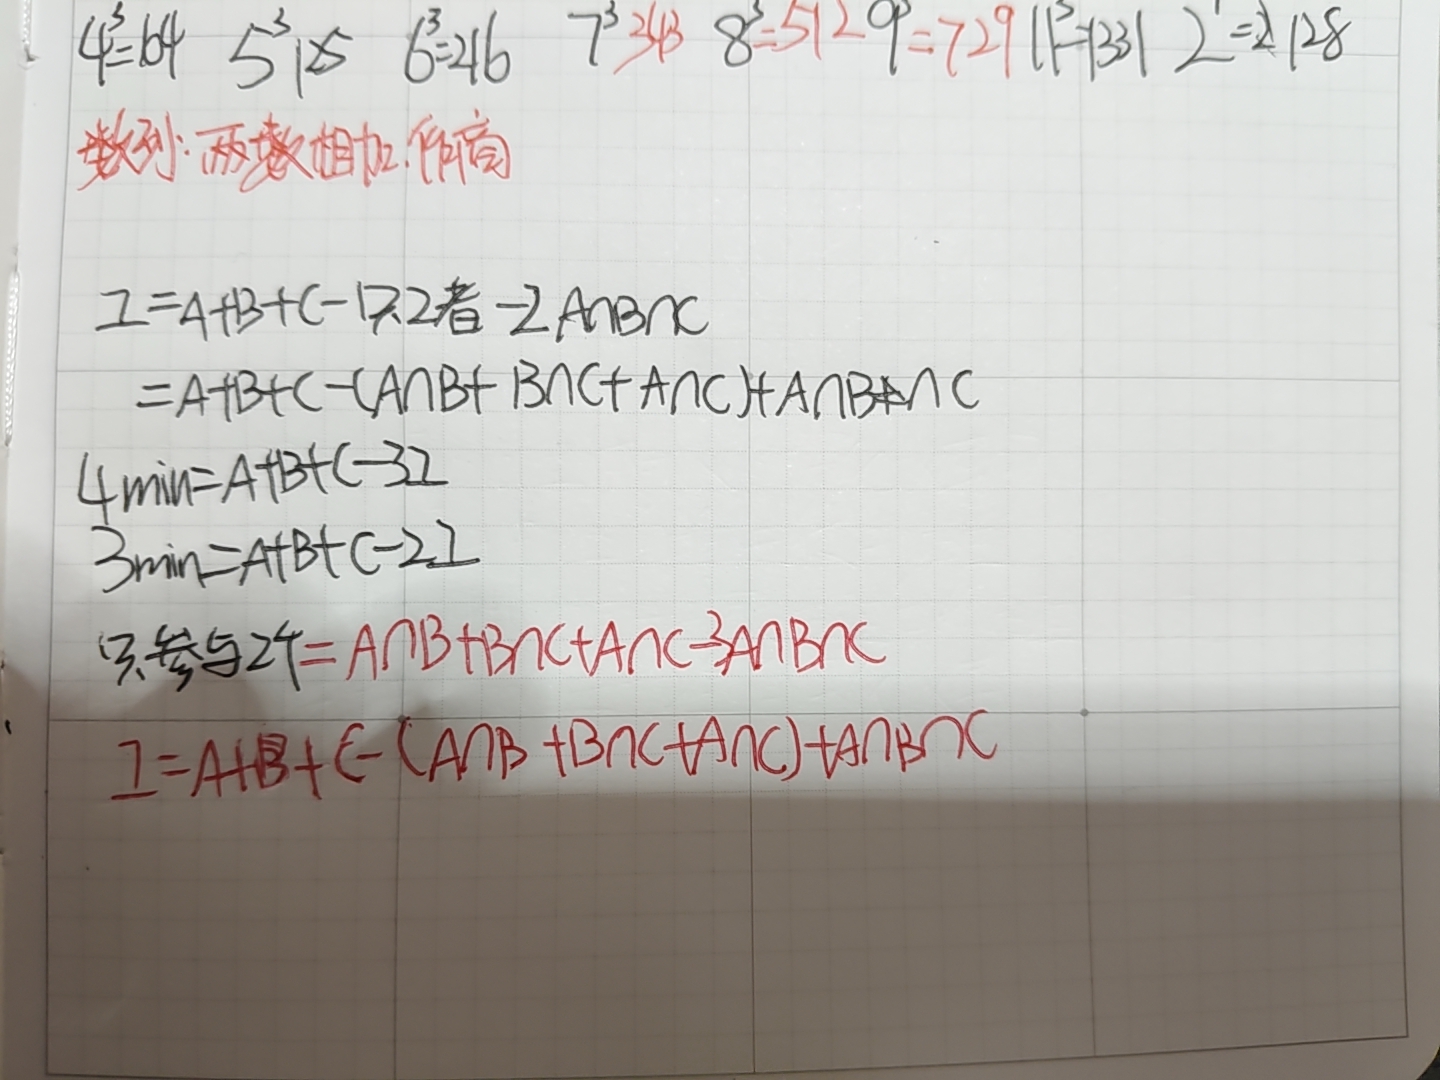 4³=64 5³125 6³=216 7³343 8³=512 9³=729 11³=1331 2⁷=128
数列:两数相加.作商
I=A+B+C-只2者-2A∩B∩C
=A+B+C-(A∩B+B∩C+A∩C)+A∩B∩C
4min=A+B+C-3I
3min=A+B+C-2I
只参与2个=A∩B+B∩C+A∩C-3A∩B∩C
I=A+B+C-(A∩B+B∩C+A∩C)+A∩B∩C